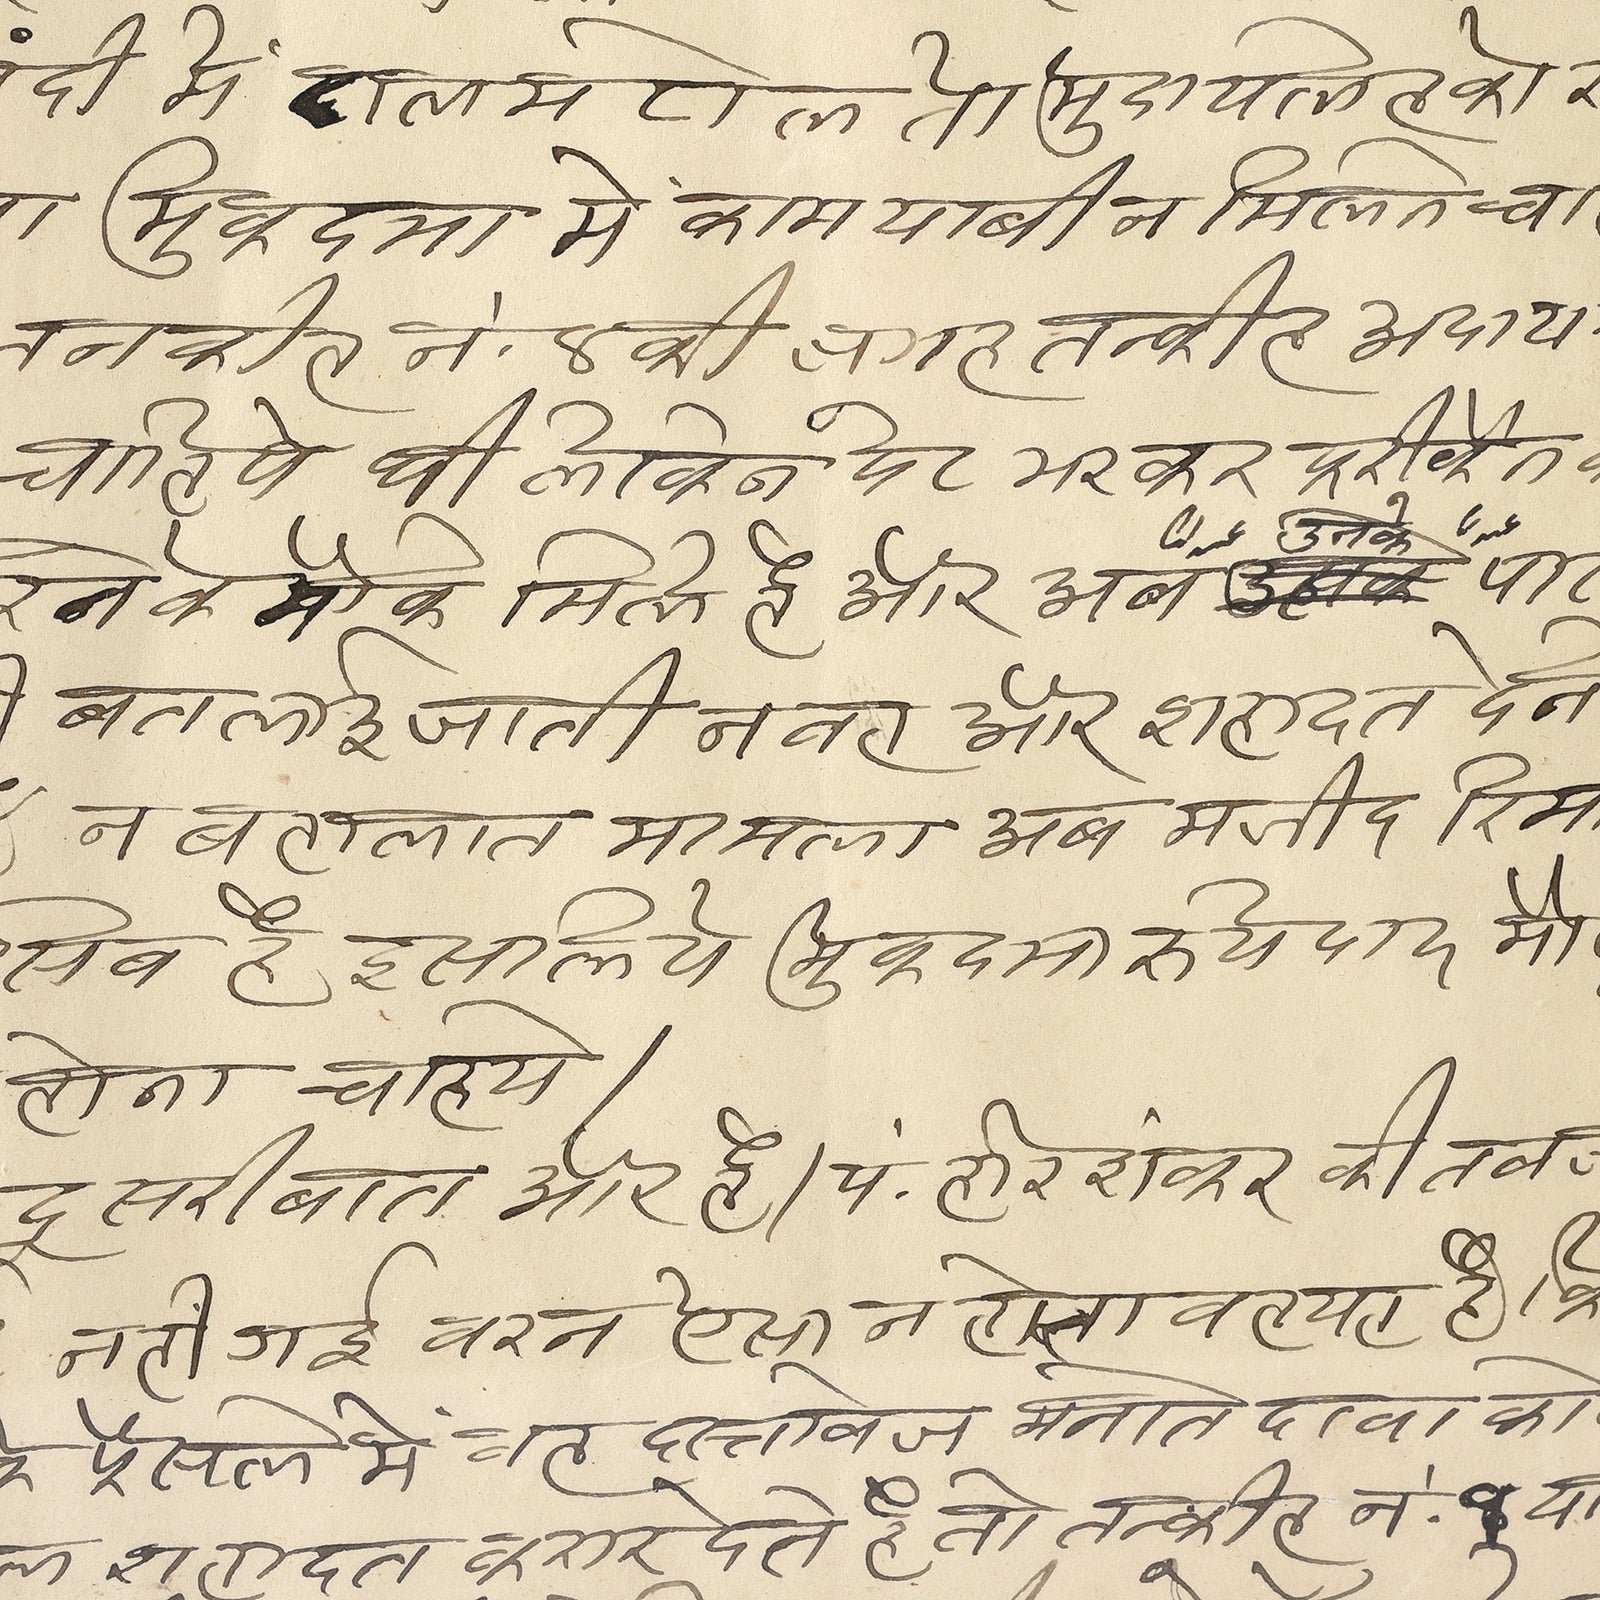 में टालमटोल तो मुदायलेह को
मुकदमा में कामयाबी न मिलते
तनकीह नं. ४ की जगह तन्कीह अदाय
चाहिये थी लेकिन पेट भरकर फरीकैन
करने के मौके मिले है और अब उनके
बतलाई जाती न वह और शहादत देने
न बहालात मामला अब मजीद रिमा
है इसलिये मुकदमा रुयेदाद
होना चाहये।
दूसरी बात और है। पं. हरिशंकर की
नहीं गई वरन ऐसा न होता वह यह है। कि
फैसले में वह दस्तावेज दावा को
शहादत करार देते है तो तन्कीह नं. या